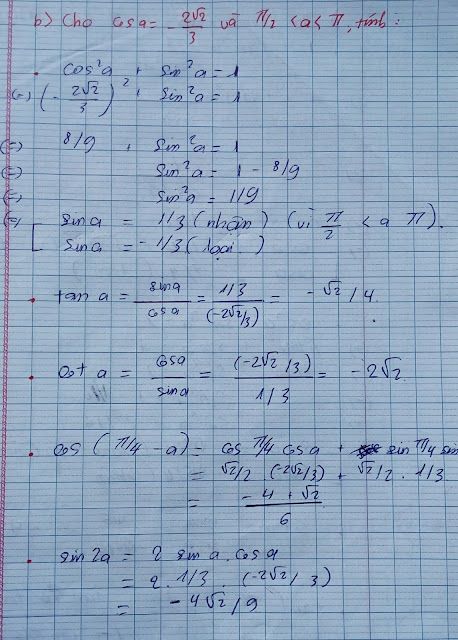 b) Cho cosa = - 2√2/3 và π/2 < a < π, tính :
. cos²a + sin²a = 1
(=) (- 2√2/3)² + sin²a = 1
(=) 8/9 + sin²a = 1
(=) sin²a = 1 - 8/9
(=) sin²a = 1/9
(=) [ sina = 1/3 (nhận) (vì π/2 < a π).
sina = - 1/3 (loại)
. tan a = sina/cosa = 1/3/(-2√2/3) = - √2/4.
. cot a = cosa/sina = (-2√2/3)/1/3 = -2√2.
. cos (π/4 - a) = cos π/4 cosa + sin π/4 sin
= √2/2 . (-2√2/3) + √2/2 . 1/3
= -4 + √2/6
. sin2a = 2 sin a . cosa
= 2 . 1/3 . (-2√2/3)
= -4√2/9